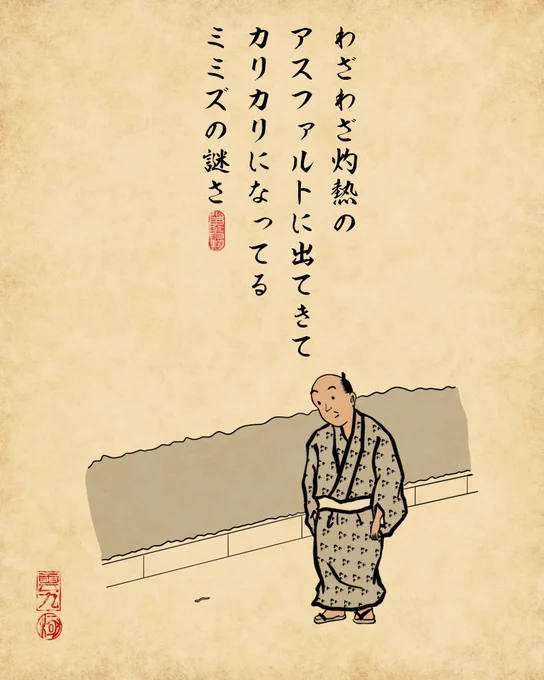 わざわざ灼熱の
アスファルトに出てきて
カリカリになってる
ミミズの謎さ